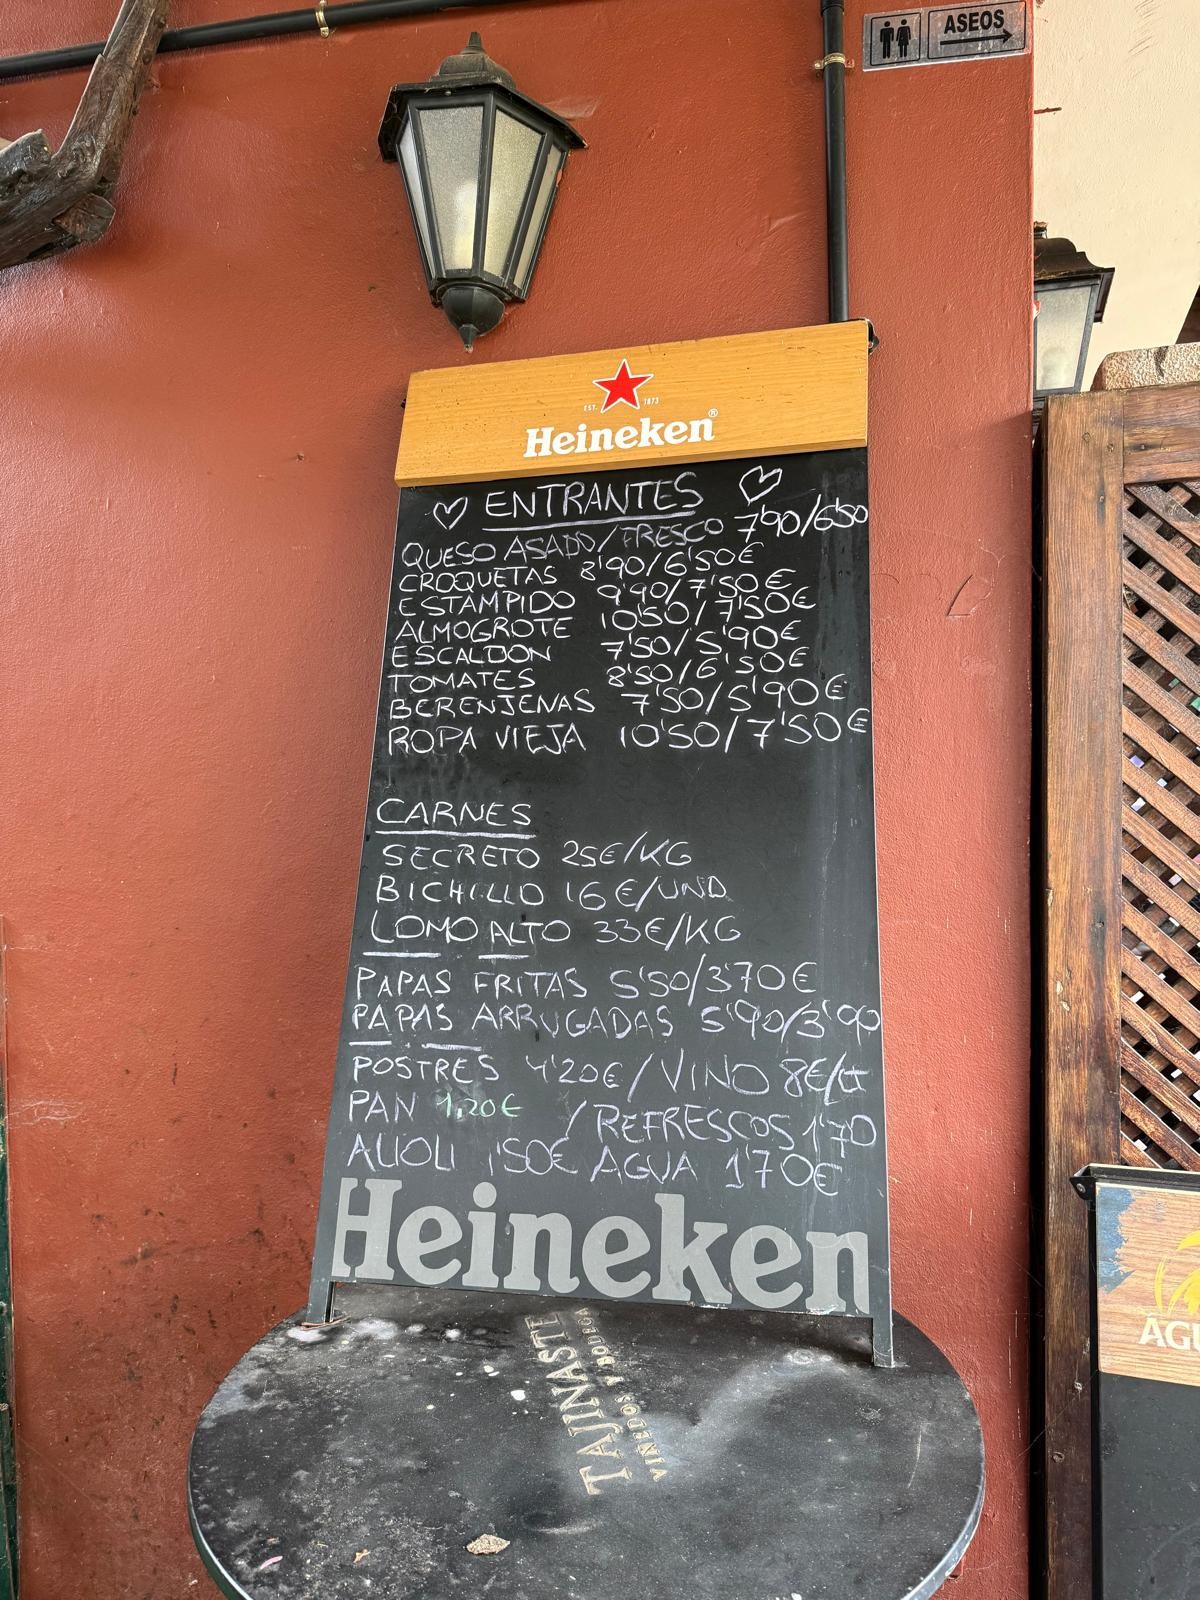 ASEOS
EST. 1873
Heineken®
ENTRANTES
QUESO ASADO/FRESCO 7'90/6'50
CROQUETAS 8'90/6'50€
ESTAMPIDO 9'90/7'50€
ALMOGROTE 10'50/7'50€
ESCALDON 7'50/5'90€
TOMATES 8'50/6'50€
BERENJENAS 7'50/5'90€
ROPA VIEJA 10'50/7'50€
CARNES
SECRETO 25€/KG
BICHILLO 16€/UND
LOMO ALTO 33€/KG
PAPAS FRITAS 5'50/3'70€
PAPAS ARRUGADAS 5'90/3'90
POSTRES 4'20€/VINO 8€/LT
PAN 1,20€ /REFRESCOS 1'70
ALIOLI 1'50€ AGUA 1'70€
Heineken
TAJINASTE
VIÑEDOS Y BODEGA
AGU